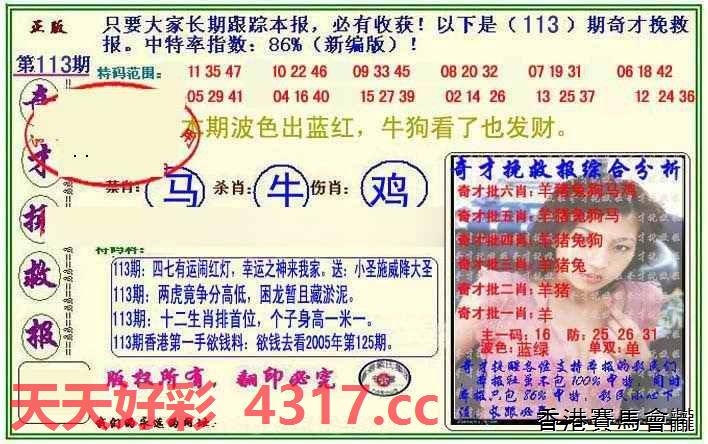 正版
只要大家长期跟踪本报，必有收获！以下是（113）期奇才挽救
报。中特率指数：86%（新编版）！
第113期
特码范围：
11 35 47 10 22 46 09 33 45 08 20 32 07 19 31 06 18 42
05 29 41 04 16 40 15 27 39 02 14 26 13 25 37 12 24 36
本期波色出蓝红，牛狗看了也发财。
才
救
报
禁肖：马 杀肖：牛 伤肖：鸡
特码料：
113期：四七有运闹红灯，幸运之神来我家。送：小圣施威降大圣
113期：两虎竟争分高低，困龙暂且藏淤泥。
113期：十二生肖排首位，个子身高一米一。
113期香港第一手欲钱料：欲钱去看2005年第125期。
版权所有，翻印必究
我们的永远的网址：
奇才挽救报综合分析
奇才批六肖：羊猪兔狗马鸡
奇才批五肖：羊猪兔狗马
奇才批四肖：羊猪兔狗
奇才批三肖：羊猪兔
奇才批二肖：羊猪
奇才批一肖：羊
主一码：16 防：25 26 31
波色：蓝绿 单双：单
奇才挽救各位支持本报的彩民们
本报社虽不包100%中特，同时
本报只包86%中特，彩民小心以下
天天好彩 4317.cc
香港賽馬會